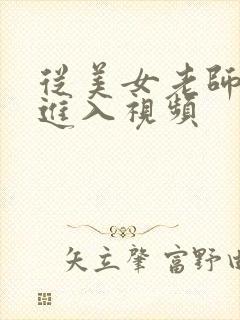 從美女老師
進入視頻
矢立肇 富野由